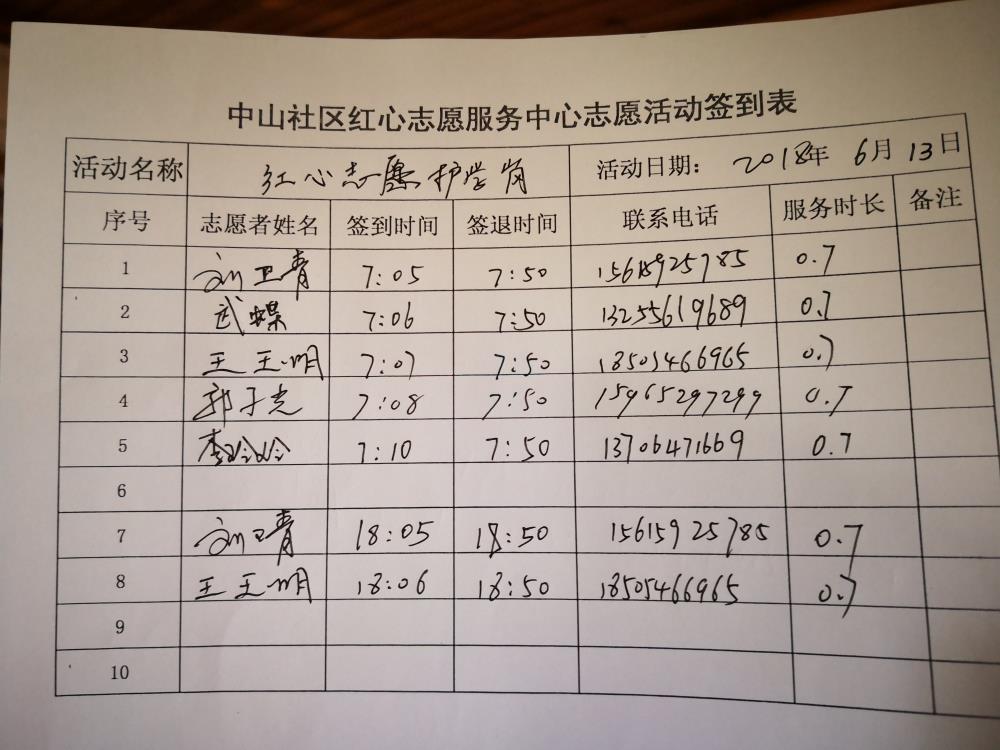 中山社区红心志愿服务中心志愿活动签到表
活动名称 红心志愿护学岗 活动日期: 2018年 6月 13日
序号 志愿者姓名 签到时间 签退时间 联系电话 服务时长 备注
1 刘卫青 7:05 7:50 15615925785 0.7
2 武蝶 7:06 7:50 13255619689 0.7
3 王玉明 7:07 7:50 18505466965 0.7
4 郭子光 7:08 7:50 15965297299 0.7
5 李玲玲 7:10 7:50 13706471669 0.7
6
7 刘卫青 18:05 18:50 15615925785 0.7
8 王玉明 18:06 18:50 18505466965 0.7
9
10